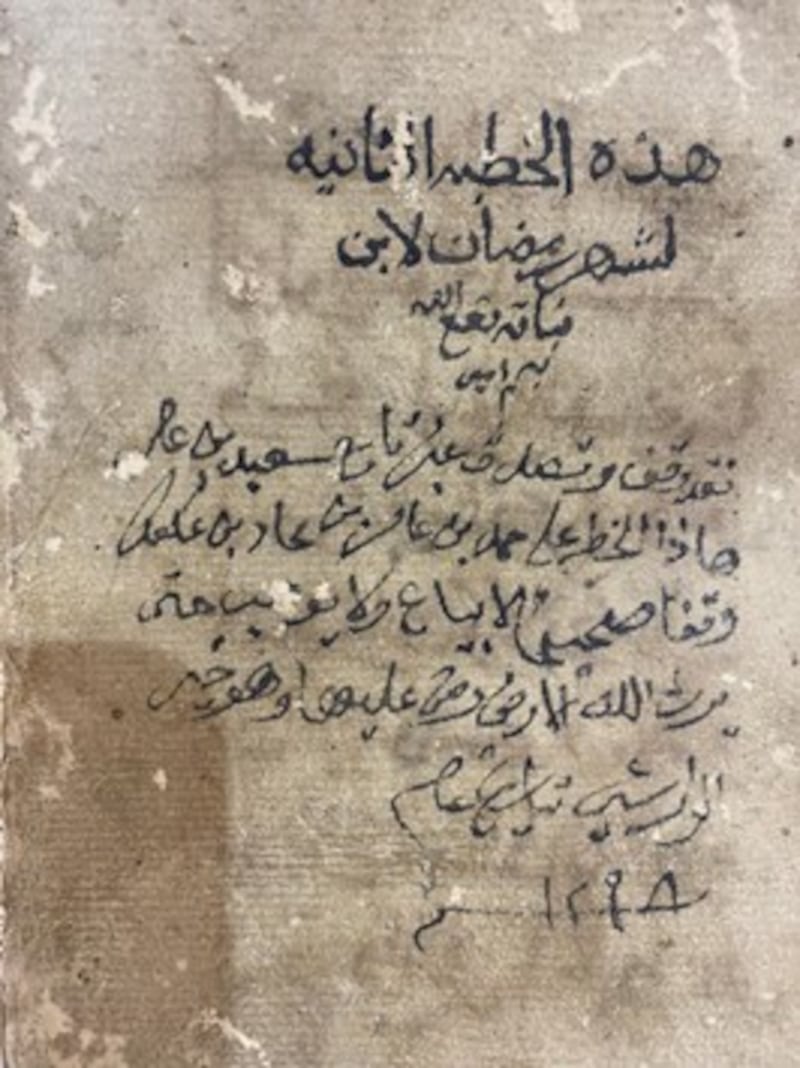 هذه الخطبه الثانيه
لشهر رمضان لابن
نباته نفع الله
به امين
فقد وقف وتصدق سعيد بن
هاذا الخطبه على حمد بن عامر بن
وقفا صحيحا لا يباع ولا يوهب حتى
يرث الله الارض ومن عليها وهو خير
الوارثين
١٢٩٨